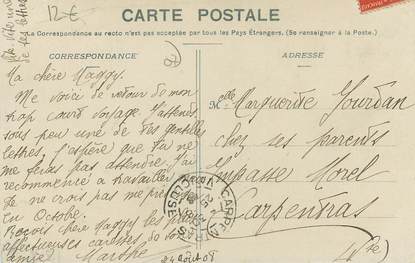 12€
CARTE POSTALE
La Correspondance au recto n'est pas acceptée par tous les Pays Étrangers. (Se renseigner à la Poste.)
CORRESPONDANCE
ADRESSE
Vite vite une
de tes lettres
Ma chère Maggy.
Me voici de retour de mon
trop court voyage J'attends
sous peu une de tes gentilles
lettres, j'espère que tu ne
me feras pas attendre. J'ai
recommencé à travailler
Je ne crois pas me
en Octobre.
Reçois chère Maggy les plus
affectueuses caresses de ton
amie Marthe
24 Août 08
Melle Marguerite Jourdan
chez ses parents
Impasse Morel
Carpentras
(Vse)
CARPENTRAS
VAUCLUSE